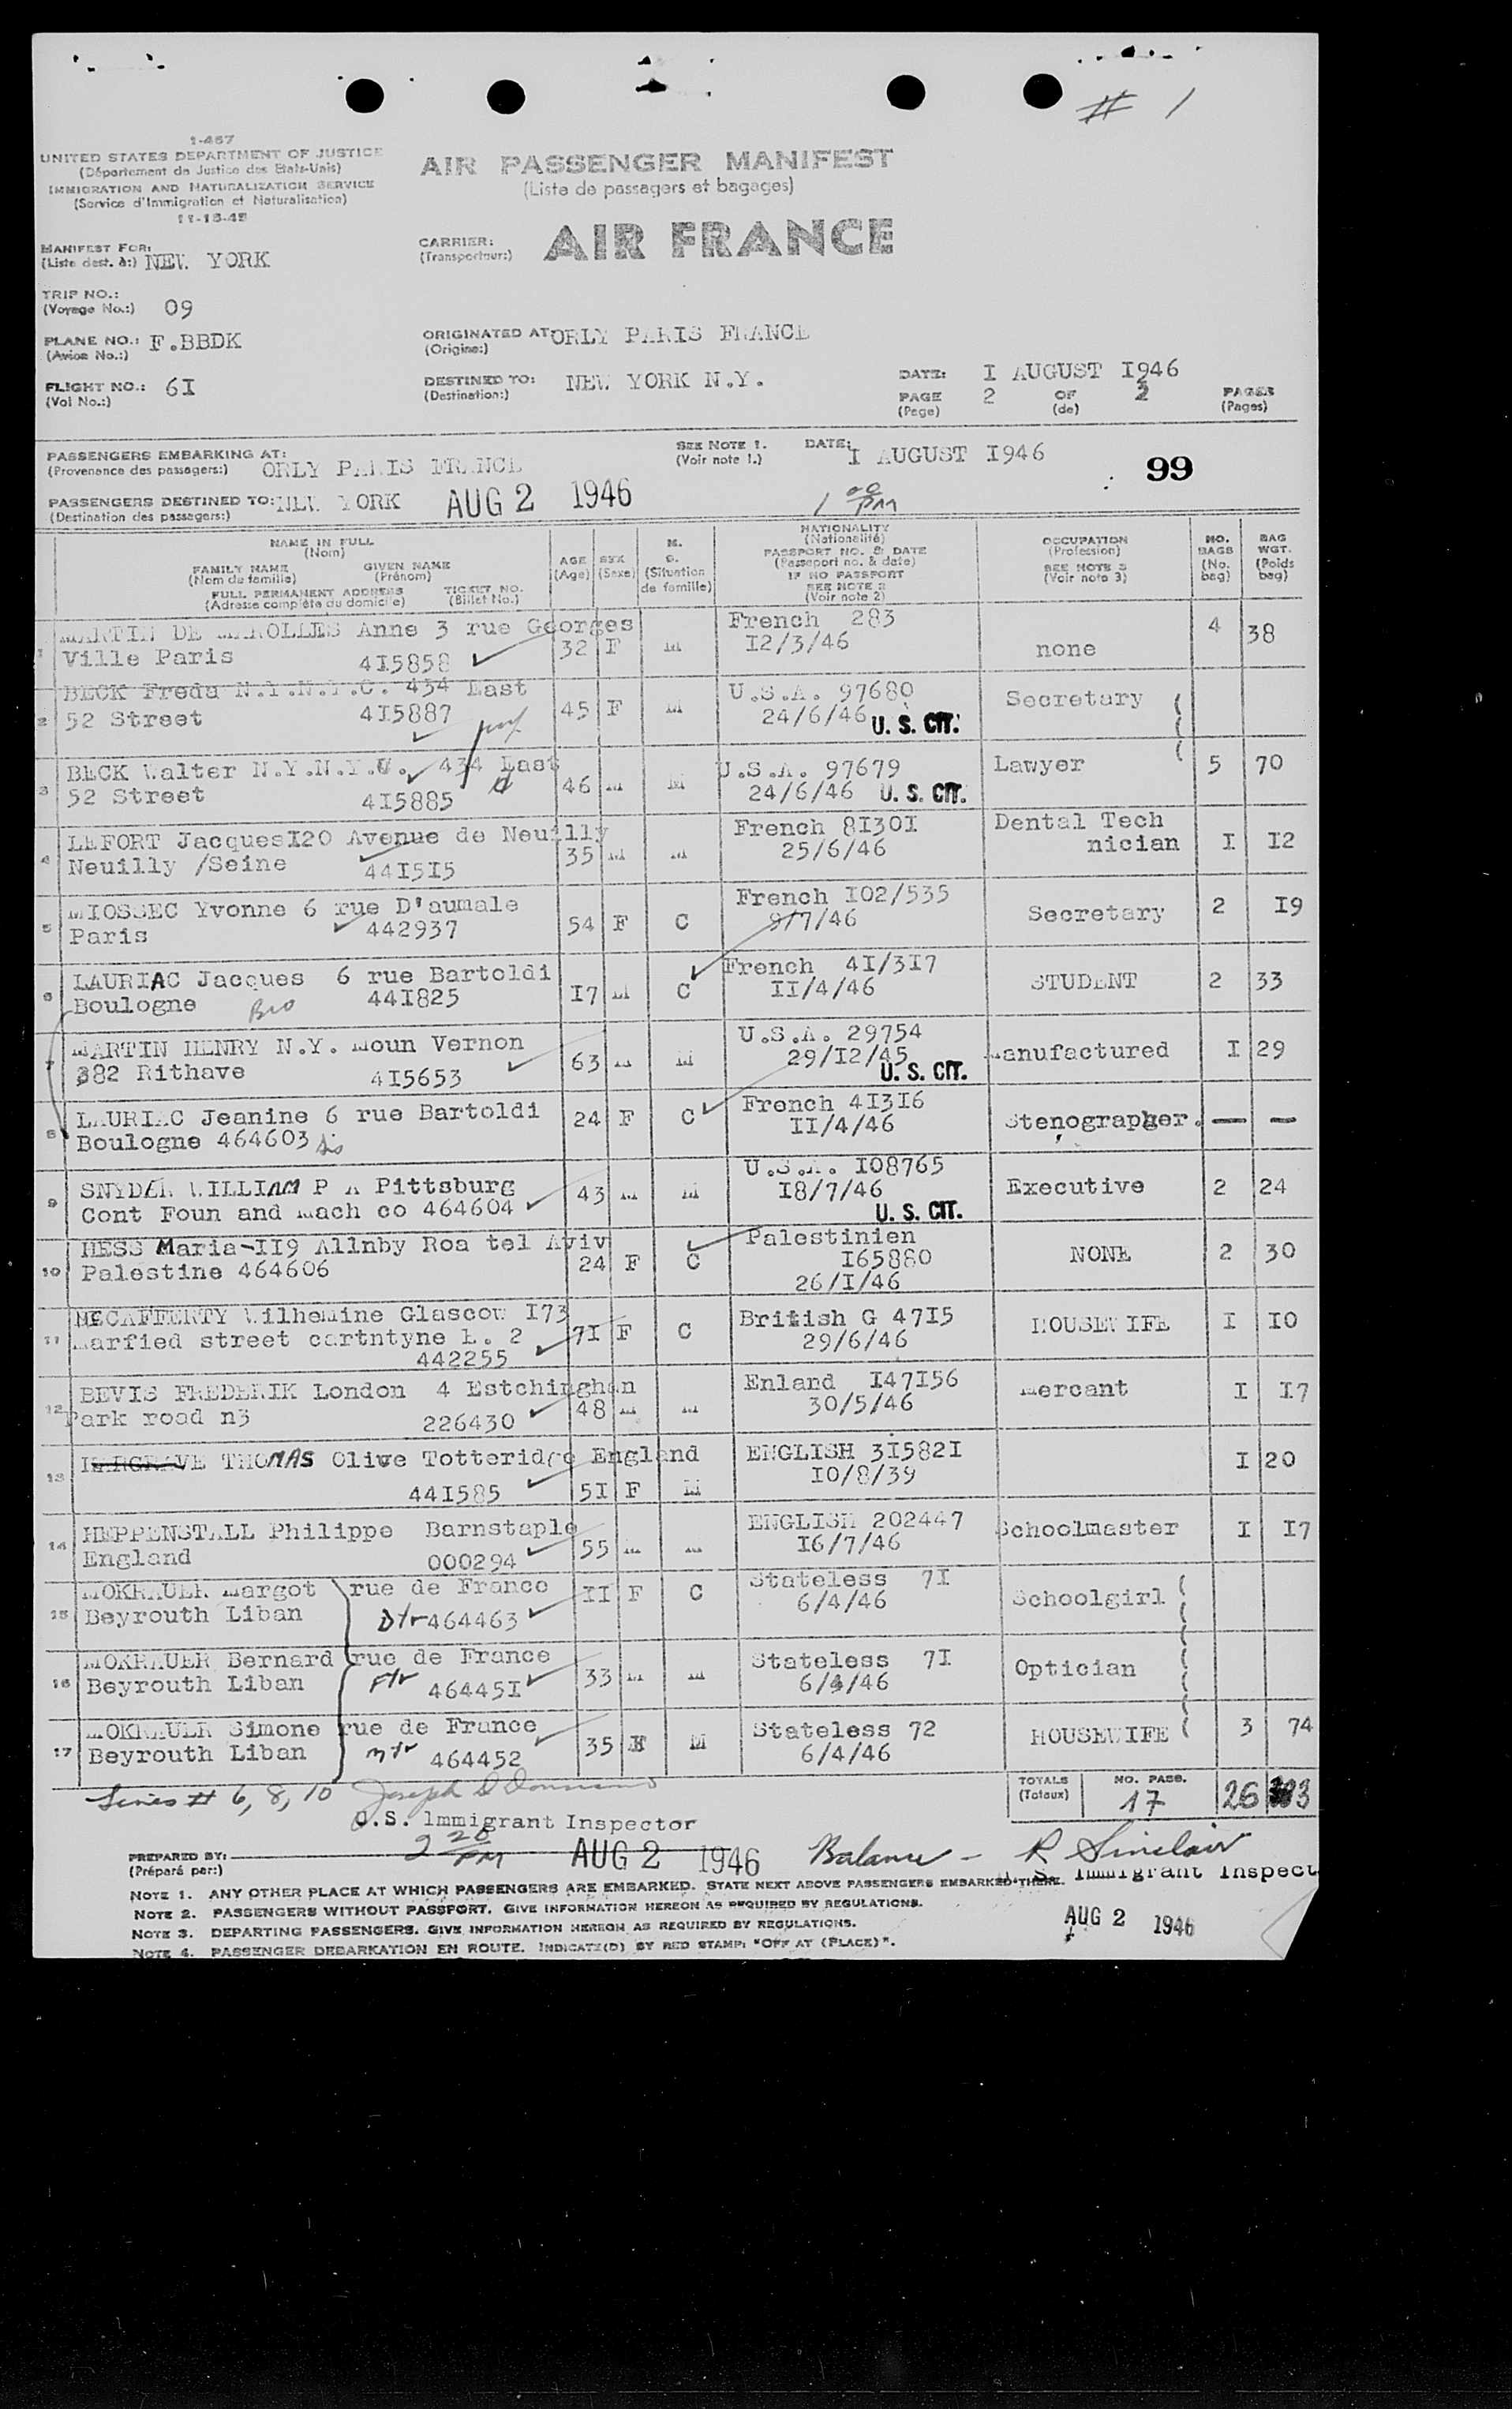 # 1
1-467
UNITED STATES DEPARTMENT OF JUSTICE
(Département de Justice des Etats-Unis)
IMMIGRATION AND NATURALIZATION SERVICE
(Service d'Immigration et Naturalisation)
11-15-45
AIR PASSENGER MANIFEST
(Liste de passagers et bagages)
MANIFEST FOR: NEW YORK
(Liste dest. à:)
CARRIER: AIR FRANCE
(Transporteur:)
TRIP NO.: 09
(Voyage No.:)
PLANE NO.: F.BBDK
(Avion No.:)
ORIGINATED AT ORLY PARIS FRANCE
(Origine:)
FLIGHT NO.: 6I
(Vol No.:)
DESTINED TO: NEW YORK N.Y.
(Destination:)
DATE: I AUGUST I946
PAGE 2 OF 2 PAGES
(Page) (de) (Pages)
PASSENGERS EMBARKING AT: ORLY PARIS FRANCE
(Provenance des passagers:)
SEE NOTE 1. DATE: I AUGUST I946
(Voir note 1.)
99
PASSENGERS DESTINED TO: NEW YORK AUG 2 1946 1 00 PM
(Destination des passagers:)
NAME IN FULL
(Nom)
FAMILY NAME GIVEN NAME
(Nom de famille) (Prénom)
FULL PERMANENT ADDRESS TICKET NO.
(Adresse complète du domicile) (Billet No.)
AGE
(Age)
SEX
(Sexe)
M.
(Situation
de famille)
NATIONALITY
(Nationalité)
PASSPORT NO. & DATE
(Passeport no. & date)
IF NO PASSPORT
SEE NOTE 2
(Voir note 2)
OCCUPATION
(Profession)
SEE NOTE 3
(Voir note 3)
NO.
BAGS
(No.
bag)
BAG
WGT.
(Poids
bag)
1 MARTIN DE MAROLLES Anne 3 rue Georges French 283 4 38
Ville Paris 4I5858 32 F M I2/3/46 none
2 BECK Freda N.Y.N.Y.C. 434 East U.S.A. 97680 Secretary
52 Street 4I5887 45 F M 24/6/46 U. S. CIT.
3 BECK Walter N.Y.N.Y.C. 434 East U.S.A. 97679 Lawyer 5 70
52 Street 4I5885 46 M M 24/6/46 U. S. CIT.
4 LEFORT Jacques I20 Avenue de Neuilly French 8I30I Dental Tech
Neuilly /Seine 44I5I5 35 M M 25/6/46 nician I I2
5 MIOSSEC Yvonne 6 rue D'aumale French I02/535 2 I9
Paris 442937 54 F C 8/7/46 Secretary
6 LAURIAC Jacques 6 rue Bartoldi French 4I/3I7 STUDENT 2 33
Boulogne Bro 44I825 I7 M C II/4/46
7 MARTIN HENRY N.Y. Moun Vernon U.S.A. 29754
382 Rithave 4I5653 63 M M 29/I2/45 U. S. CIT. Manufactured I 29
8 LAURIAC Jeanine 6 rue Bartoldi 24 F C French 4I3I6
Boulogne 464603 Sis II/4/46 Stenographer. — —
9 SNYDER WILLIAM P A Pittsburg 43 M M U.S.A. I08765 Executive 2 24
Cont Foun and Mach co 464604 I8/7/46 U. S. CIT.
10 HESS Maria-II9 Allnby Roa tel Aviv Palestinien
Palestine 464606 24 F C I65880 NONE 2 30
26/I/46
11 MCCAFFERTY Wilhemine Glascow I73 British G 47I5
Marfied street cartntyne E. 2 7I F C 29/6/46 HOUSEWIFE I I0
442255
12 BEVIS FREDERIK London 4 Estchinghan Enland I47I56
Park road n3 226430 48 M M 30/5/46 Mercant I I7
13 HARGRAVE THOMAS Olive Totteridge England ENGLISH 3I582I I 20
44I585 5I F M I0/8/39
14 HEPPENSTALL Philippe Barnstaple ENGLISH 202447 Schoolmaster I I7
England 000294 55 M M I6/7/46
15 MOKRAUER Margot rue de France II F C Stateless 7I
Beyrouth Liban Dtr 464463 6/4/46 Schoolgirl
16 MOKRAUER Bernard rue de France Stateless 7I
Beyrouth Liban Ftr 46445I 33 M M 6/4/46 Optician
17 MOKRAUER Simone rue de France Stateless 72 3 74
Beyrouth Liban Mtr 464452 35 F M 6/4/46 HOUSEWIFE
Lines # 6, 8, 10
TOTALS NO. PASS.
(Totaux) 17 26
U.S. Immigrant Inspector
2 20 PM AUG 2 1946
PREPARED BY:
(Préparé par:)
Balance - R Sinclair
U. S. Immigrant Inspect
NOTE 1. ANY OTHER PLACE AT WHICH PASSENGERS ARE EMBARKED. STATE NEXT ABOVE PASSENGERS EMBARKED THERE.
NOTE 2. PASSENGERS WITHOUT PASSPORT. GIVE INFORMATION HEREON AS REQUIRED BY REGULATIONS.
NOTE 3. DEPARTING PASSENGERS. GIVE INFORMATION HEREON AS REQUIRED BY REGULATIONS.
NOTE 4. PASSENGER DEBARKATION EN ROUTE. INDICATE(D) BY RED STAMP: "OFF AT (PLACE)".
AUG 2 1946